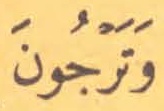 وَتَرْجُونَ